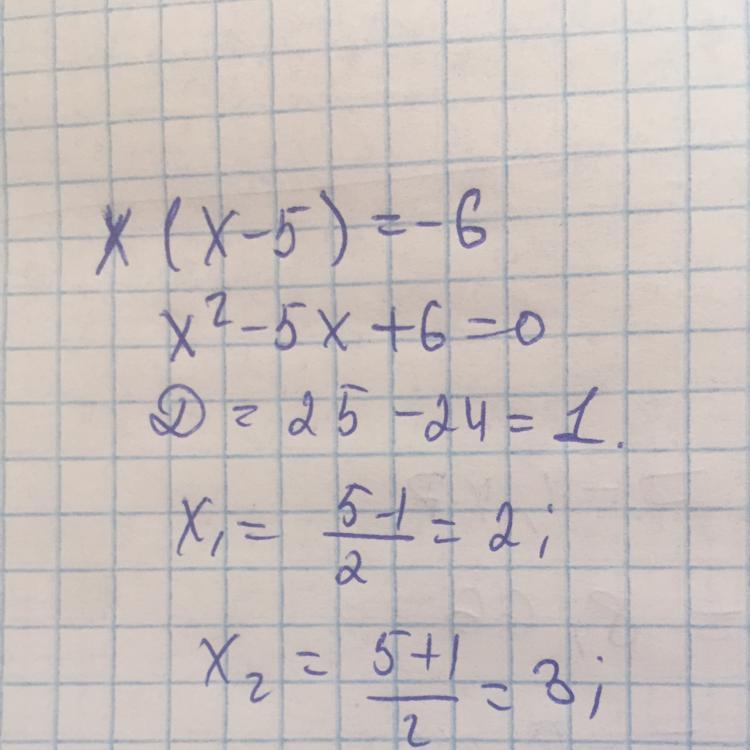 x (x-5) = -6
x² - 5x + 6 = 0
D = 25 - 24 = 1.
x₁ = (5-1)/2 = 2;
x₂ = (5+1)/2 = 3;